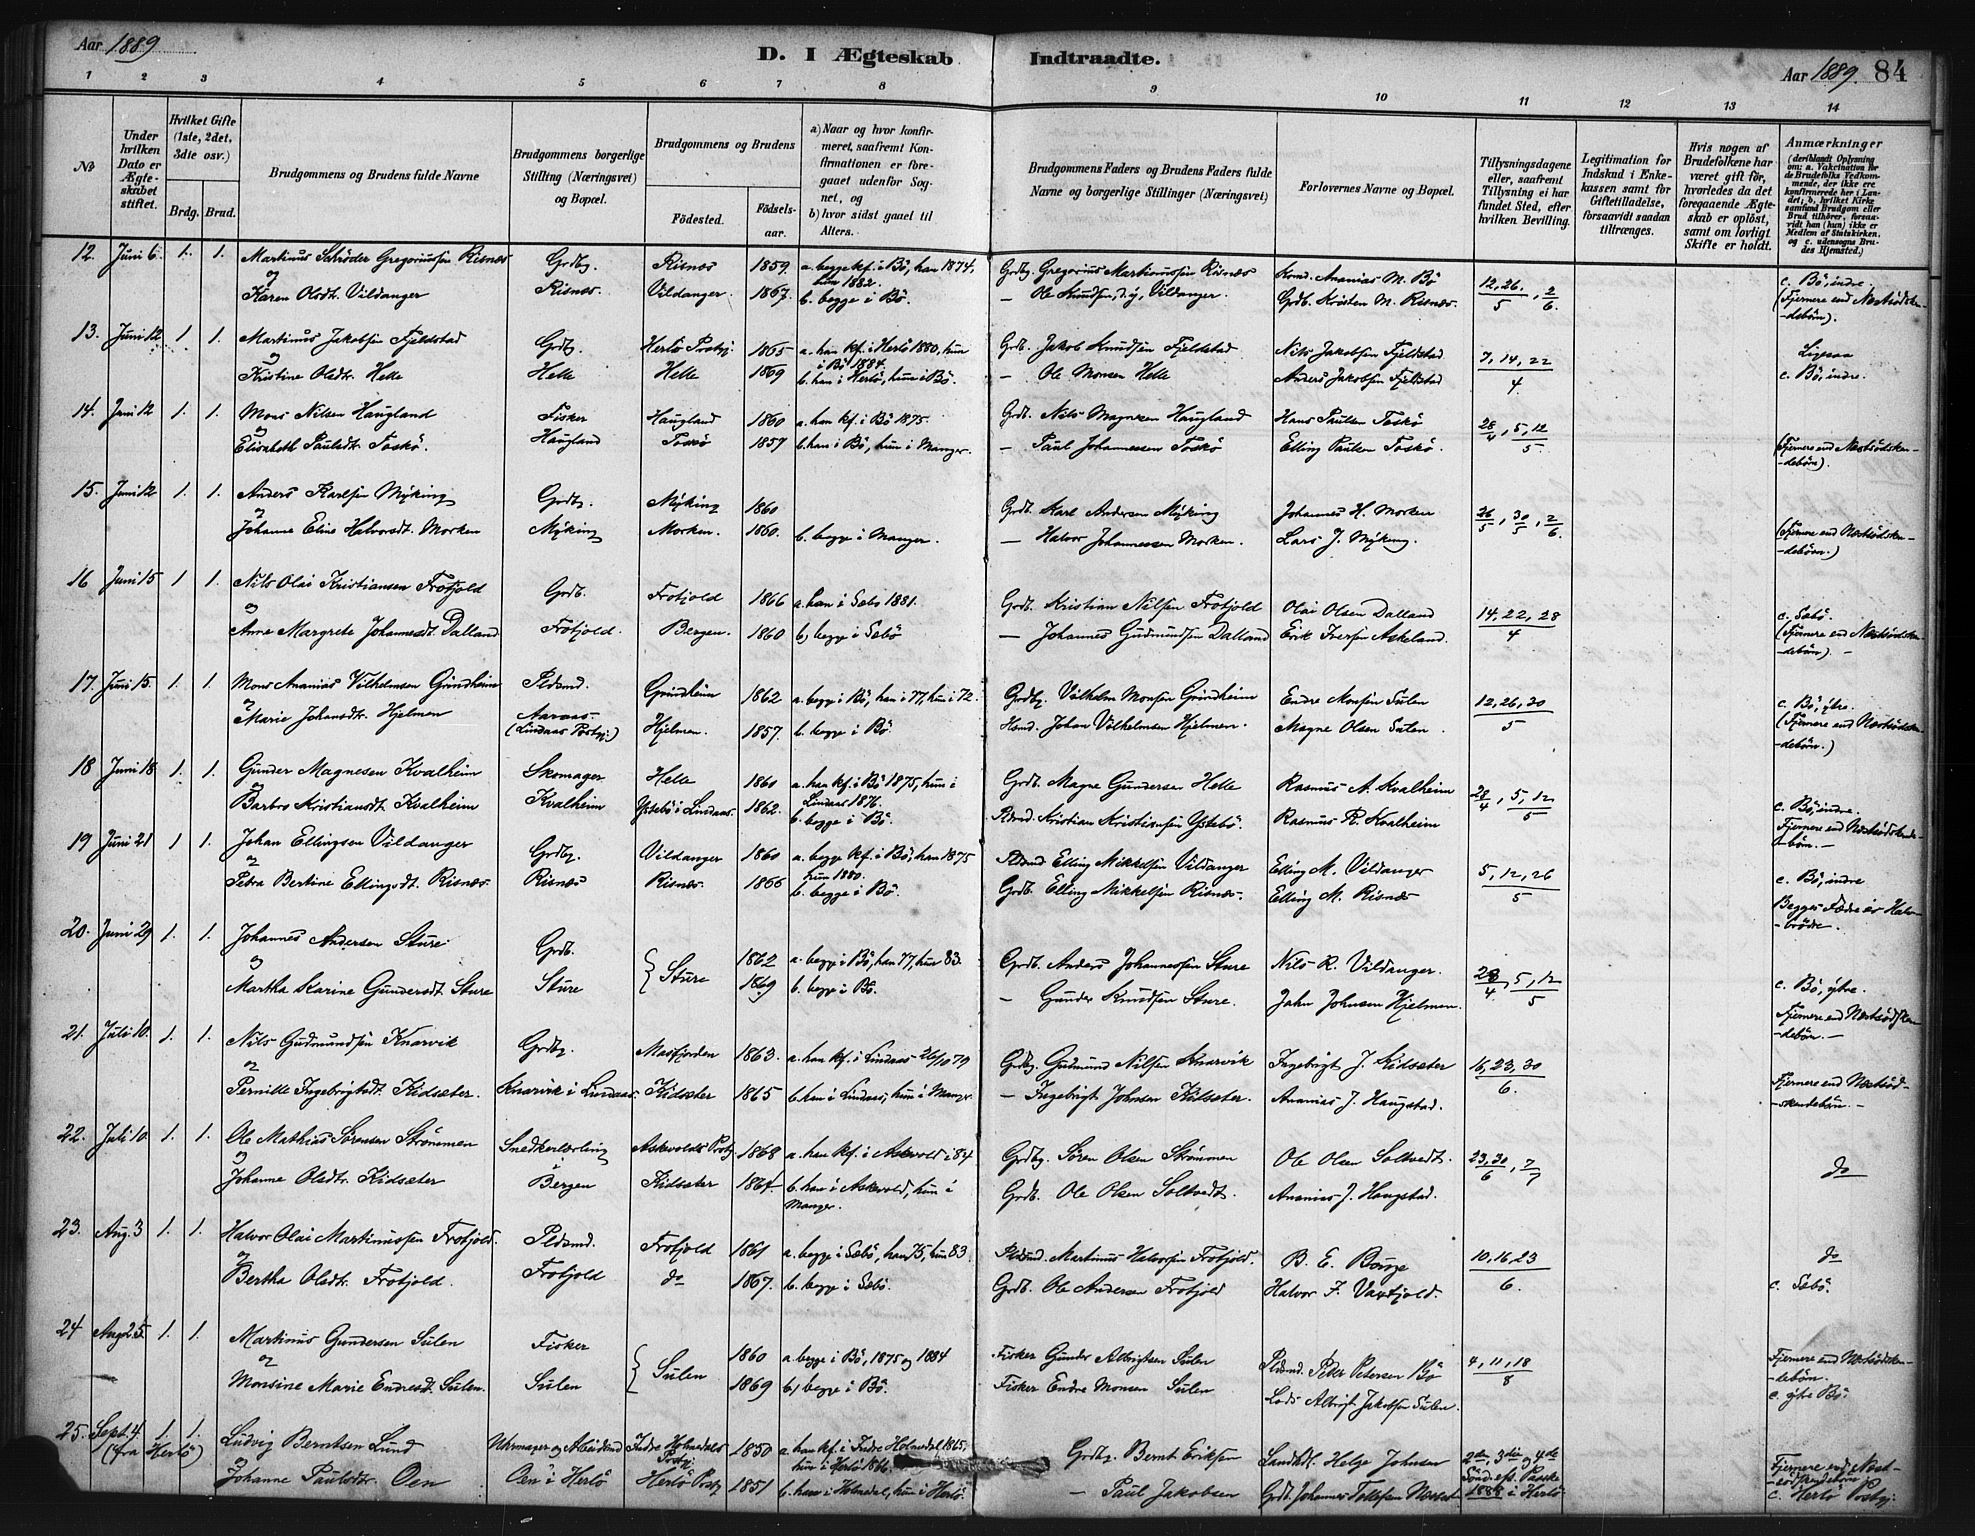 Aar 1889
D. I Ægteskab Indtraadte.
Aar 1889. 84
1 2 3 4 5 6 7 8 9 10 11 12 13 14
No
Under hvilken Dato er Ægteskabet stiftet.
Hvilket Gifte (1ste, 2det, 3die osv.)
Brdg. Brud.
Brudgommens og Brudens fulde Navne
Brudgommens borgerlige Stilling (Næringsvei) og Bopæl.
Brudgommens og Brudens
Fødested. Fødselsaar.
a) Naar og hvor konfirmeret, saafremt Konfirmationen er foregaaet udenfor Sognet, og
b) hvor sidst gaaet til Alters.
Brudgommens Faders og Brudens Faders fulde Navne og borgerlige Stillinger (Næringsvei)
Forlovernes Navne og Bopæl.
Tillysningsdagene eller, saafremt Tillysning ei har fundet Sted, efter hvilken Bevilling.
Legitimation for Indskud i Enkekassen samt for Giftetilladelse, forsaavidt saadan tiltrænges.
Hvis nogen af Brudefolkene har været gift før, hvorledes da det foregaaende Ægteskab er opløst, samt om lovligt Skifte er holdt.
Anmærkninger
(deriblandt Oplysning om: a. Vakcination for de Brudefolks Vedkommende, der ikke ere konfirmerede her i Landet; b. hvilket Kirkesamfund Brudgom eller Brud tilhører, forsaavidt han (hun) ikke er Medlem af Statskirken, og c. udensogns Brudes Hjemsted.)
12. Juni 6. 1. 1. Martinus Schrøder Gregoriussen Risnæs Grdbg. Risnæs 1859. a. begge kf. i Bö, han 1874, Grdbg. Gregorius Martinussen Risnæs Ananias M. Bö 12, 26. 2 c. Bö, indre
og hun 1882.
Karen Olsdt. Vildanger Risnæs. Vildanger. 1867. b. begge i Bö. — Ole Knudsen, d.y., Vildanger. Grdb. Kristen M. Risnæs. 5 6. (Fjernere end Næstsödsken-
-debörn).
13. Juni 12 1 1. Martinus Jakobsen Fjeldstad Grdbg. Herlö Prstgj. 1865 a. han kf. i Herlö 1880, hun Grdb. Jakob Knudsen Fjeldstad Nils Jakobsen Fjeldstad 7, 14, 22
og i Bö 1884.
Kristine Olsdtr. Helle Helle Helle 1869 b. han i Herlö, hun i Bö. — Ole Monsen Helle Anders Jakobsen Fjeldstad 4. c. Bö, indre.
14. Juni 12 1. 1. Mons Nilsen Haugland Fisker Haugland 1860 a. han kf. i Bö 1875. Grdb. Nils Magnesen Haugland Hans Paulsen Toskö 28, 5, 12
og
Elisabeth Paulsdtr. Toskö. Haugland Toskö 1857 b. han i Bö, hun i Manger. — Paul Johannessen Toskö Elling Paulsen Toskö. 4 5. (Fjernere end Næstsödsken-
-debörn).
15. Juni 12 1. 1. Anders Karlsen Mÿking Grdbg. Mÿking 1860 Grdb. Karl Andersen Mÿking Johannes H. Morken 26, 30, 2
og
Johanne Eline Halvorsdt. Morken Mÿking Morken. 1860. b. begge i Manger. — Halvor Johannessen Morken. Lars J. Mÿking. 5 5 6. (Fjernere end Næstsödsken-
-debörn.)
16 Juni 15 1 1. Nils Olai Kristiansen Frotjold Grdb. Frotjold 1866 a. han i Sæbö 1881. Grdb. Kristian Nilsen Frotjold Olai Olsen Dalland 14, 22, 28 c. Sæbö.
og
Anne Margrete Johannesdt. Dalland Frotjold. Bergen. 1860 b) begge i Sæbö — Johannes Gudmundsen Dalland Erik Iversen Askeland. 4 (Fjernere end Næstsödsken-
-debörn). -
17. Juni 15. 1. 1. Mons Ananias Vilhelmsen Grindheim Pldsmd. Grindheim 1862 a. begge i Bö, han i 77, hun i 72. Grdbg. Vilhelm Monsen Grindheim Endre Monsen Sulen 12, 26, 30 c. Bö, ytre.
og
Marie Johansdtr. Hjelmen (Lindaas Pstgj.) Hjelmen. 1857. b. begge i Bö. Johan Vilhelmsen Hjelmen. Magne Olsen Sulen. 5 (Fjernere end Næstsödsken-
-debörn.)
18 Juni 18. 1. 1. Gunder Magnesen Kvalheim Skomager Helle 1860 a. han kf. i Bö 1875, hun i Grdb. Magne Gundersen Helle Rasmus A. Kvalheim 28, 5, 12 c. Bö, indre.
og Lindaas 1876.
Barbro Kristiansdt. Kvalheim Kvalheim Ystebö i Lindaas. 1862. b. begge i Bö. Pldsmd. Kristian Kristiansen Ystebö. Rasmus R. Kvalheim 4 5 Fjernere end Næstsödsken-
-debörn. -
19 Juni 21 1 1. Johan Ellingsen Vildanger Grdbg. Vildanger 1860 a. begge kf. i Bö, han 1875 Pldsmd Elling Mikkelsen Vildanger Elling M. Vildanger 5, 12, 26 c. Bö, indre
og hun 1880.
Petra Bertine Ellingsdt. Risnæs. Risnæs Risnæs. 1866 b. begge i Bö. Grdb. Elling Mikkelsen Risnæs. Elling M. Risnæs 5 Begges Fædre er Halv-
-brödre.
20. Juni 29 1. 1. Johannes Andersen Sture Grdb. Sture 1862 a. begge i Bö, han 77, hun 83. Grdb. Anders Johannessen Sture Nils R. Vildanger. 28, 5, 12
og
Martha Karine Gundersdt. Sture Sture 1869 b. begge i Bö. — Gunder Knudsen Sture. Jahn Johnsen Hjelmen. 4 5 c. Bö, ytre.
Fjernere end Næstsödsken-
-debörn. -
21. Juli 10. 1. 1. Nils Gudmundsen Knarvik Grdbg. Masfjorden 1863. a. han kf. i Lindaas 26/10 79 Grdbg. Gutmund Nilsen Knarvik Ingebrigt J. Kidsæter 16, 23, 30
og
Pernille Ingebrigtsdt. Kidsæter. Knarvik i Lindaas. Kidsæter 1865 b. han i Lindaas, hun i Manger — Ingebrigt Johnsen Kidsæter. Ananias J. Haugstad. 6. Fjernere end Næstsöd-
-skendebörn. -
22. Juli 10. 1. 1. Ole Mathias Sörensen Strömmen Snedkerlærling Askvolds Prstgj. 1868 a. han kf. i Askvold i 84 Grdbg. Sören Olsen Strömmen Ole Olsen Soltvedt. 23, 30, 7 do
og i
Johanne Olsdtr. Kidsæter Bergen Kidsæter 1864. b. han i Askvold, hun i Grdb. Ole Olsen Soltvedt. Ananias J. Haugstad. 6 7
Manger.
23. Aug. 3 1. 1. Halvor Olai Martinussen Frotjold. Pldsmd. Frotjold 1861 a. begge i Sæbö, han 75, hun 83. Pldsmd. Martinus Halvorsen Frotjold. B. E. Borge 10, 16, 23 do
og
Bertha Olsdtr. Frotjold. Frotjold do 1867. b. begge i Sæbö. Grdb. Ole Andersen Frotjold Halvor J. Vaxtjold. 6. c. Sæbö.
24 Aug 25. 1. 1. Martinus Gundersen Sulen Fisker Sulen 1860 a. begge i Bö, 1875 og 1884 Fisker Gunder Albrigtsen Sulen Pldsmd. Peder Petersen Bö 4, 11, 18 Fjernere end Næstsödsken-
og -debörn.
Monsine Marie Endresdt. Sulen. Sulen 1869 b) begge i Bö. Fisker Endre Monsen Sulen Lods Albrigt Jakobsen Sulen. 8 c. ytre Bö.
25. Sept. 4. 1. 1. Ludvig Berntsen Lund Uhrmager og Indre Holmedals Prstgj. 1850 a. han kf. i Indre Holmedal 1865, Grdbg. Bernt Eriksen Helge Johnsen 2den, 3die og 4de
(fra Herlö) og hun i Herlö 1866. Sönd. eft. Paaske Fjernere end Næst-
Johanne Paulsdtr. Oen Oen i Herlö Herlö Prstgj 1851 b. han i Holmedal, hun i Herlö. — Paul Jakobsen Grdb. Johannes 1888 i Herlö -södskendebörn
c. Herlö Prstgj.